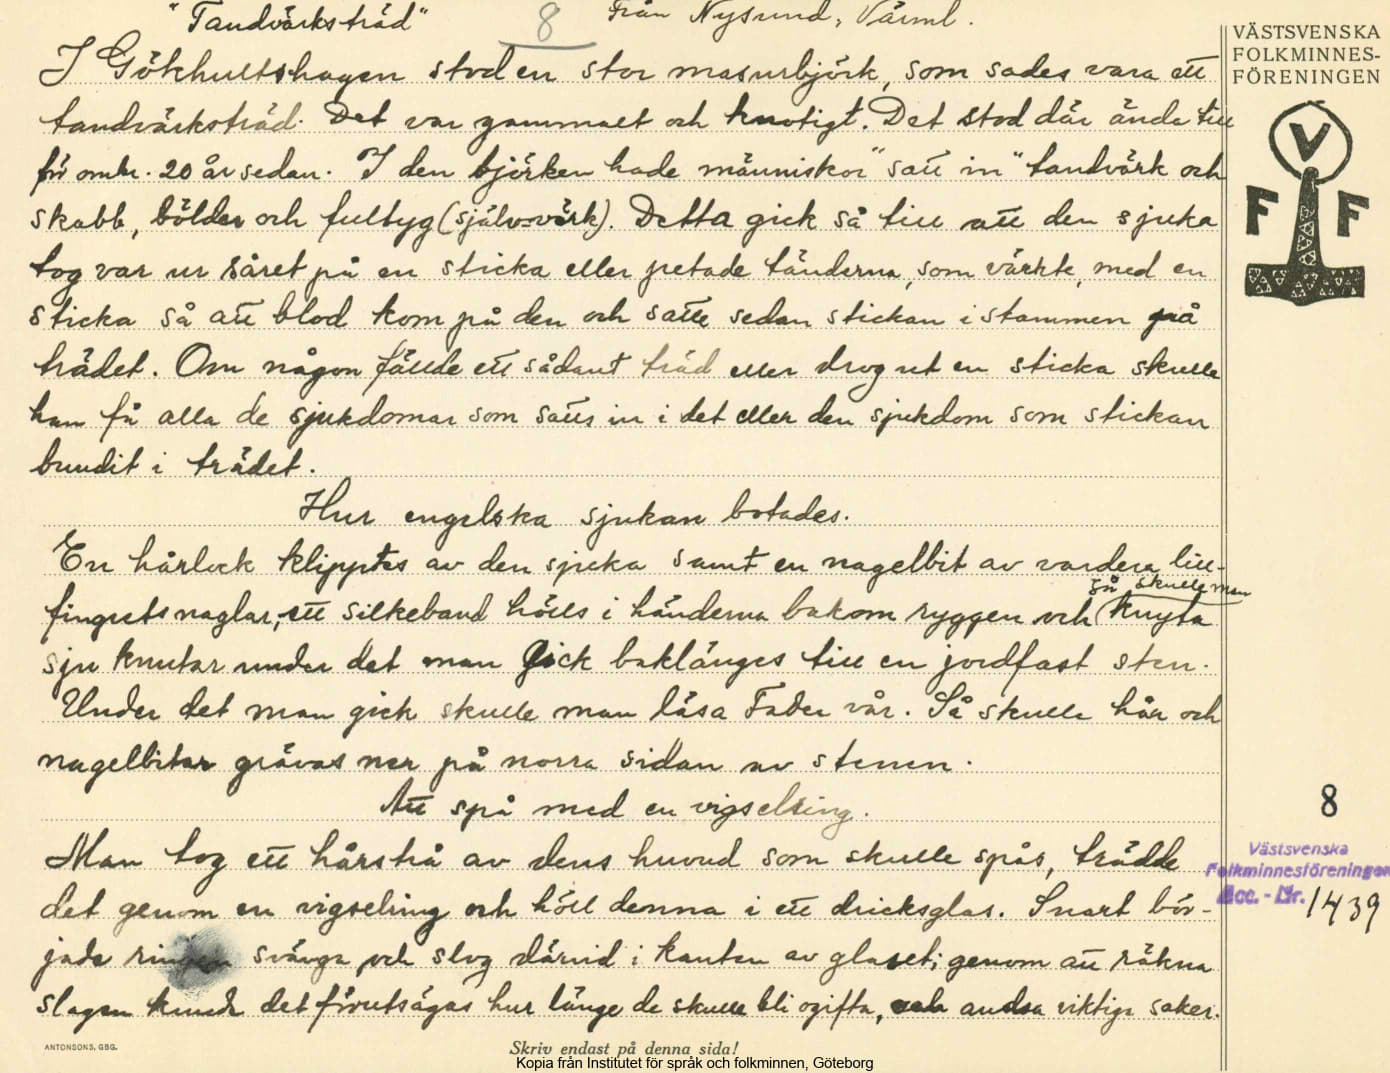 "Tandvärksträd" 8 Från Nysund, Värml.
VÄSTSVENSKA
FOLKMINNES-
FÖRENINGEN
V
F F
I Gökhultshagen stod en stor masurbjörk, som sades vara ett
tandvärksträd. Det var gammalt och knotigt. Det stod där ända till
för omkr. 20 år sedan. I den björken hade människor "satt in" tandvärk och
skabb, bölder och fultyg (självvärk). Detta gick så till att den sjuka
tog var ur såret på en sticka eller petade tänderna, som värkte, med en
sticka så att blod kom på den och satte sedan stickan i stammen på
trädet. Om någon fällde ett sådant träd eller drog ut en sticka skulle
han få alla de sjukdomar som satts in i det eller den sjukdom som stickan
bundit i trädet.
Hur engelska sjukan botades.
En hårlock klipptes av den sjuka samt en nagelbit av vardera lill-
fingrets naglar, ett silkeband hölls i händerna bakom ryggen och (så skulle man knyta
sju knutar under det man gick baklänges till en jordfast sten.
Under det man gick skulle man läsa Fader vår. Så skulle hår och
nagelbitar grävas ner på norra sidan av stenen.
Att spå med en vigselring.
Man tog ett hårstrå av dens huvud som skulle spås, trädde
det genom en vigselring och höll denna i ett dricksglas. Snart bör-
jade ringen svänga och slog därvid i kanten av glaset; genom att räkna
slagen kunde det förutsägas hur länge de skulle bli ogifta, och andra viktiga saker.
8
Västsvenska
Folkminnesföreningen
Acc. - Nr. 1439
ANTONSONS, GBG.
Skriv endast på denna sida!
Kopia från Institutet för språk och folkminnen, Göteborg